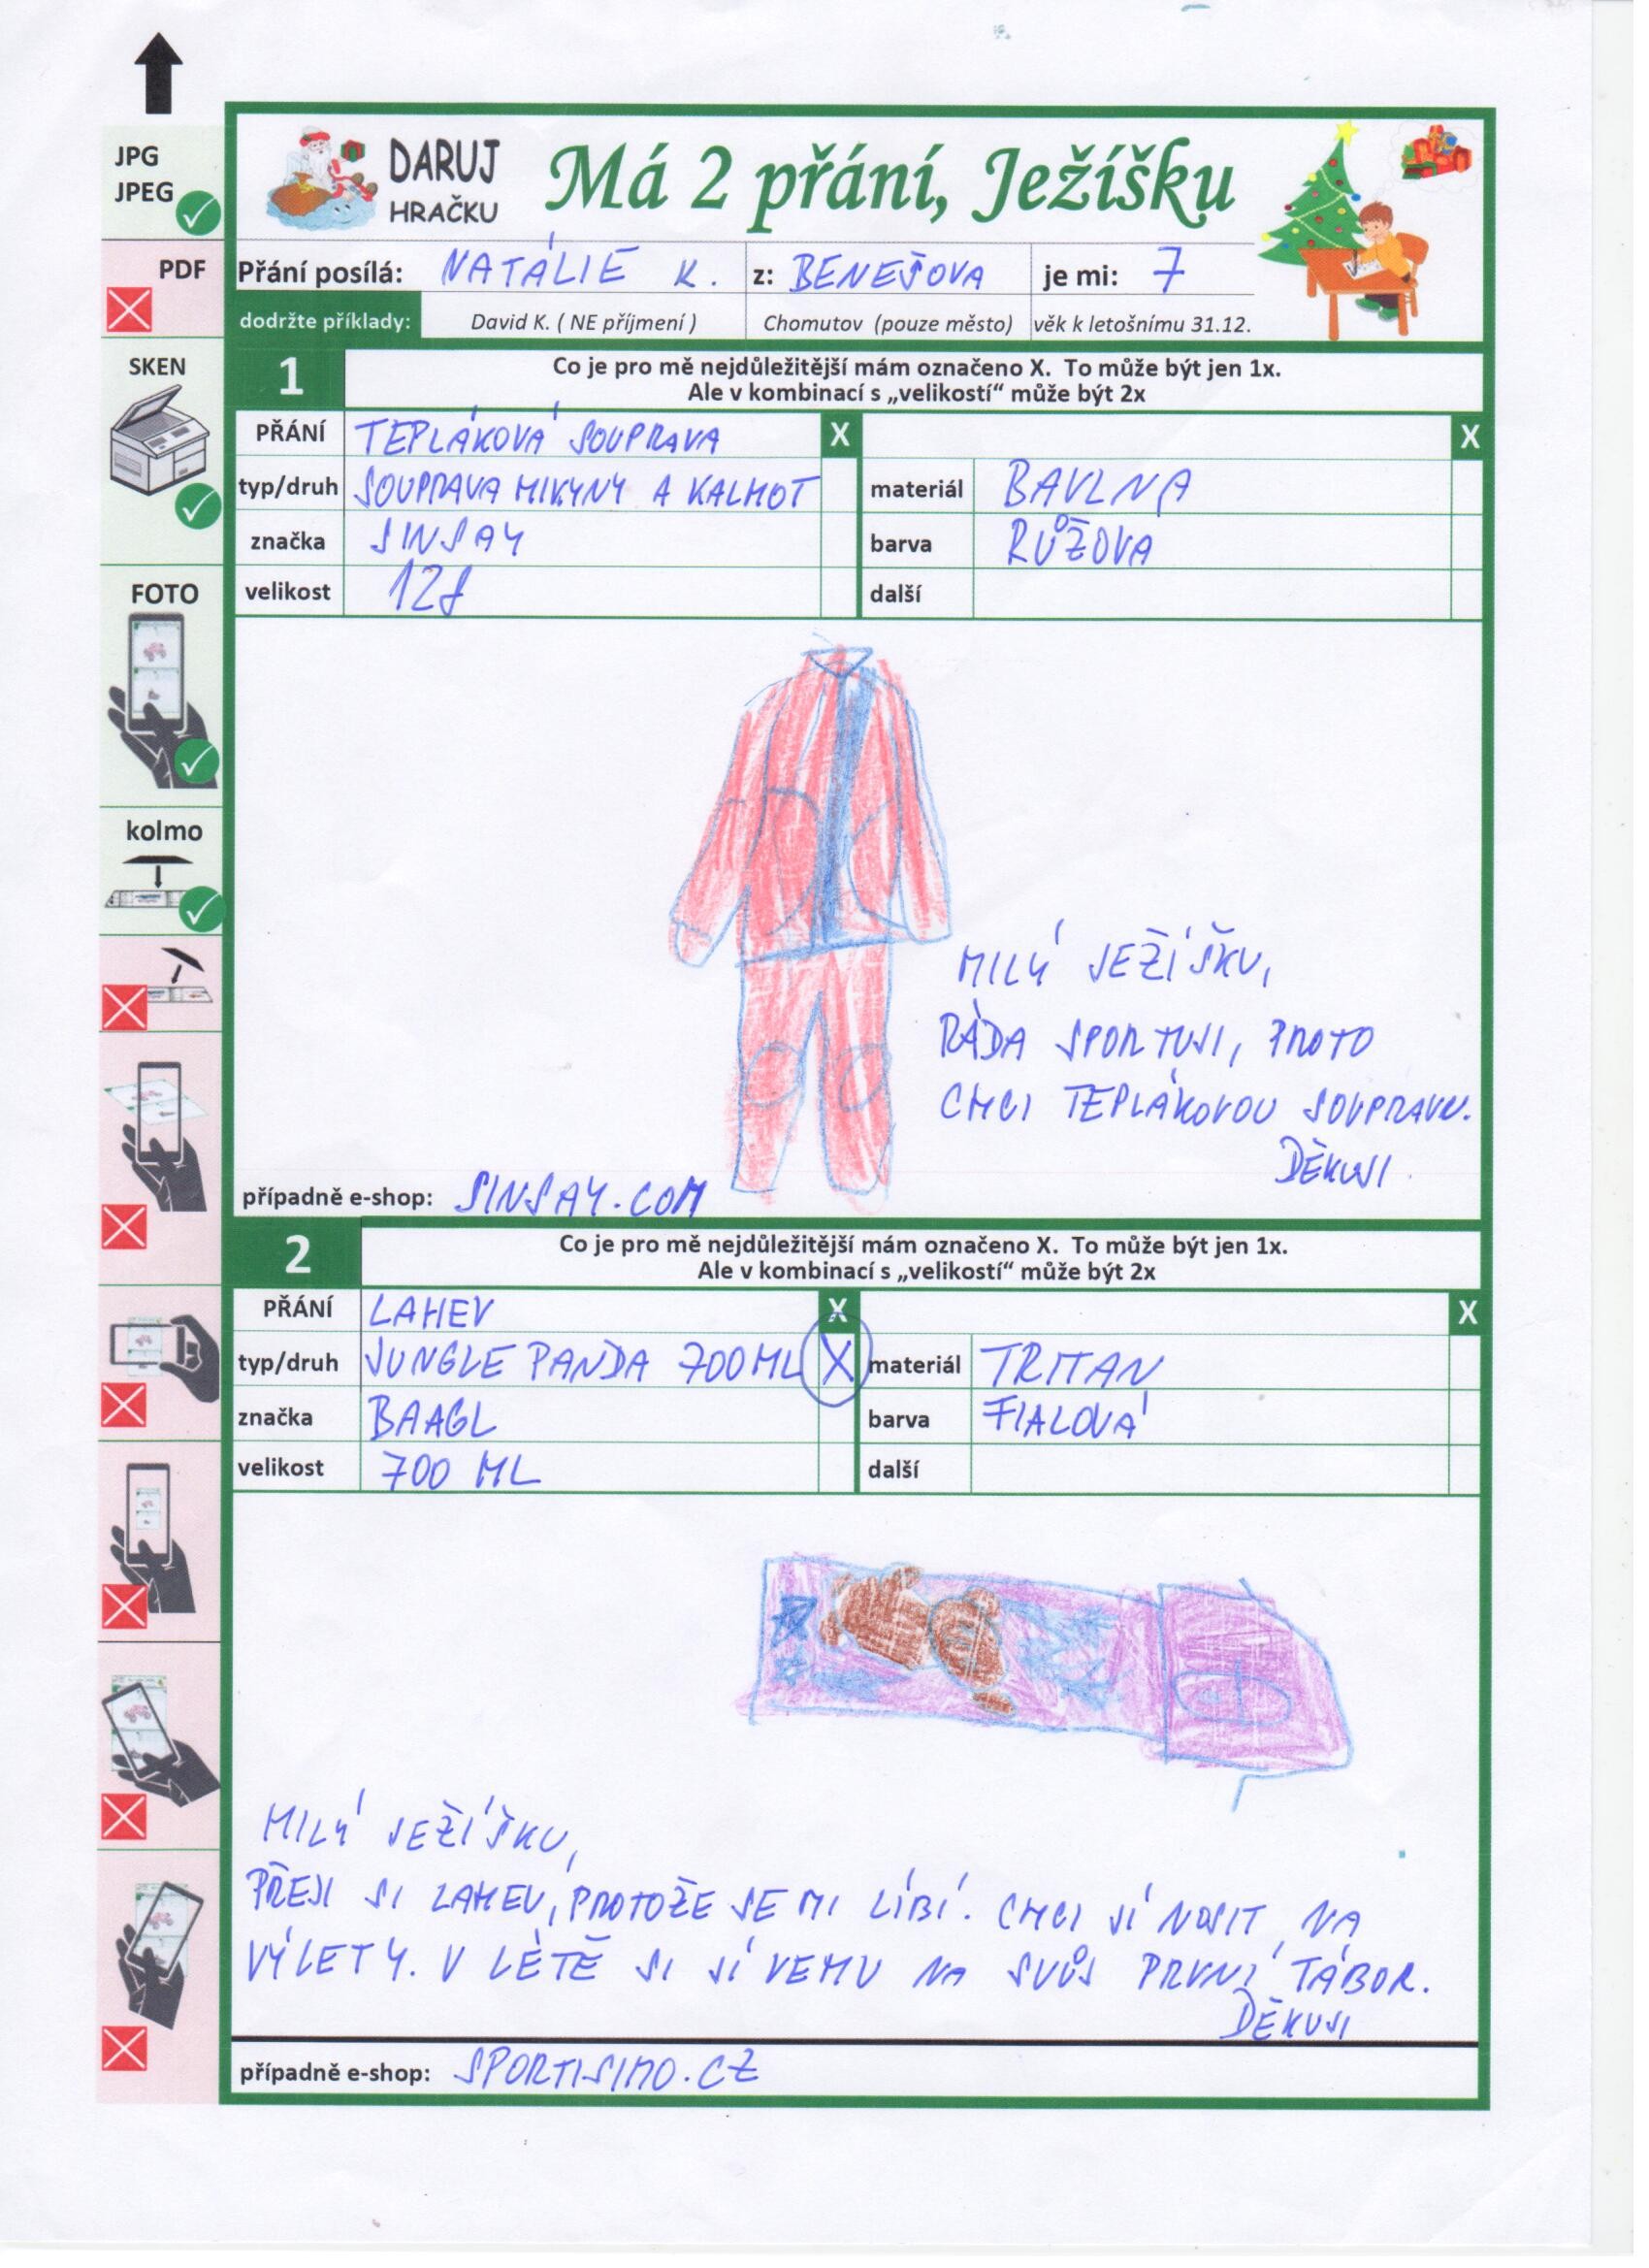 JPG
JPEG
PDF
SKEN
FOTO
kolmo
DARUJ
HRAČKU
Má 2 přání, Ježíšku
Přání posílá: NATÁLIE K. z: BENEŠOVA je mi: 7
dodržte příklady: David K. ( NE příjmení ) Chomutov (pouze město) věk k letošnímu 31.12.
1 Co je pro mě nejdůležitější mám označeno X. To může být jen 1x.
Ale v kombinací s „velikostí“ může být 2x
PŘÁNÍ TEPLÁKOVÁ SOUPRAVA X X
typ/druh SOUPRAVA MIKYNY A KALHOT materiál BAVLNA
značka SINSAY barva RŮŽOVA
velikost 128 další
MILÝ JEŽÍŠKU,
RÁDA SPORTUJI, PROTO
CHCI TEPLÁKOVOU SOUPRAVU.
DĚKUJI.
případně e-shop: SINSAY.COM
2 Co je pro mě nejdůležitější mám označeno X. To může být jen 1x.
Ale v kombinací s „velikostí“ může být 2x
PŘÁNÍ LAHEV X X
typ/druh JUNGLE PANDA 700ML X materiál TRITAN
značka BAAGL barva FIALOVÁ
velikost 700 ML další
MILÝ JEŽÍŠKU,
PŘEJI SI LAHEV, PROTOŽE SE MI LÍBÍ. CHCI JÍ NOSIT NA
VÝLETY. V LÉTĚ SI JÍ VEMU NA SVŮJ PRVNÍ TÁBOR.
DĚKUJI
případně e-shop: SPORTISIMO.CZ